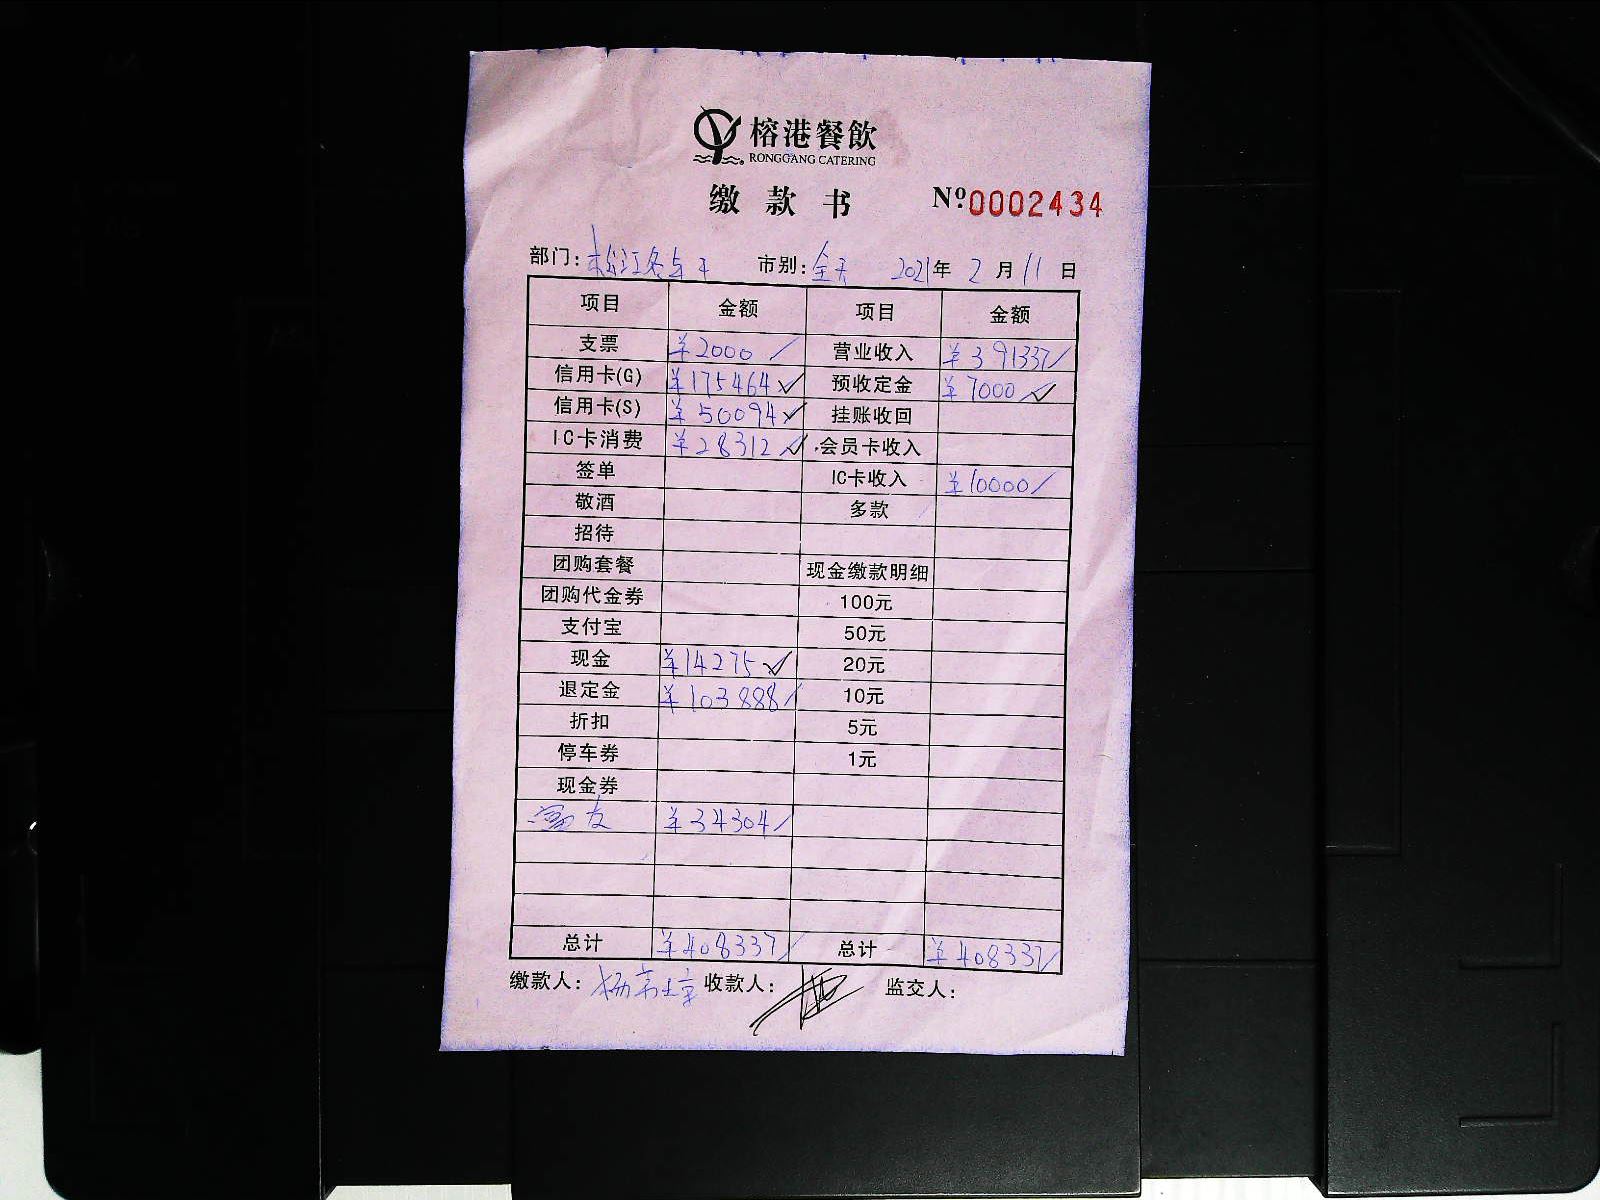 榕港餐飲
RONGGANG CATERING
缴款书 №0002434
部门: 松江 市别: 全天 2021年 2月 11日
项目 金额 项目 金额
支票 ¥2000 营业收入 ¥391337
信用卡(G) ¥175464 预收定金 ¥7000
信用卡(S) ¥50094 挂账收回
IC卡消费 ¥28312 会员卡收入
签单 IC卡收入 ¥10000
敬酒 多款
招待
团购套餐 现金缴款明细
团购代金券 100元
支付宝 50元
现金 ¥14275 20元
退定金 ¥103888 10元
折扣 5元
停车券 1元
现金券
¥34304
总计 ¥408337 总计 ¥408337
缴款人: 杨 收款人: 监交人: